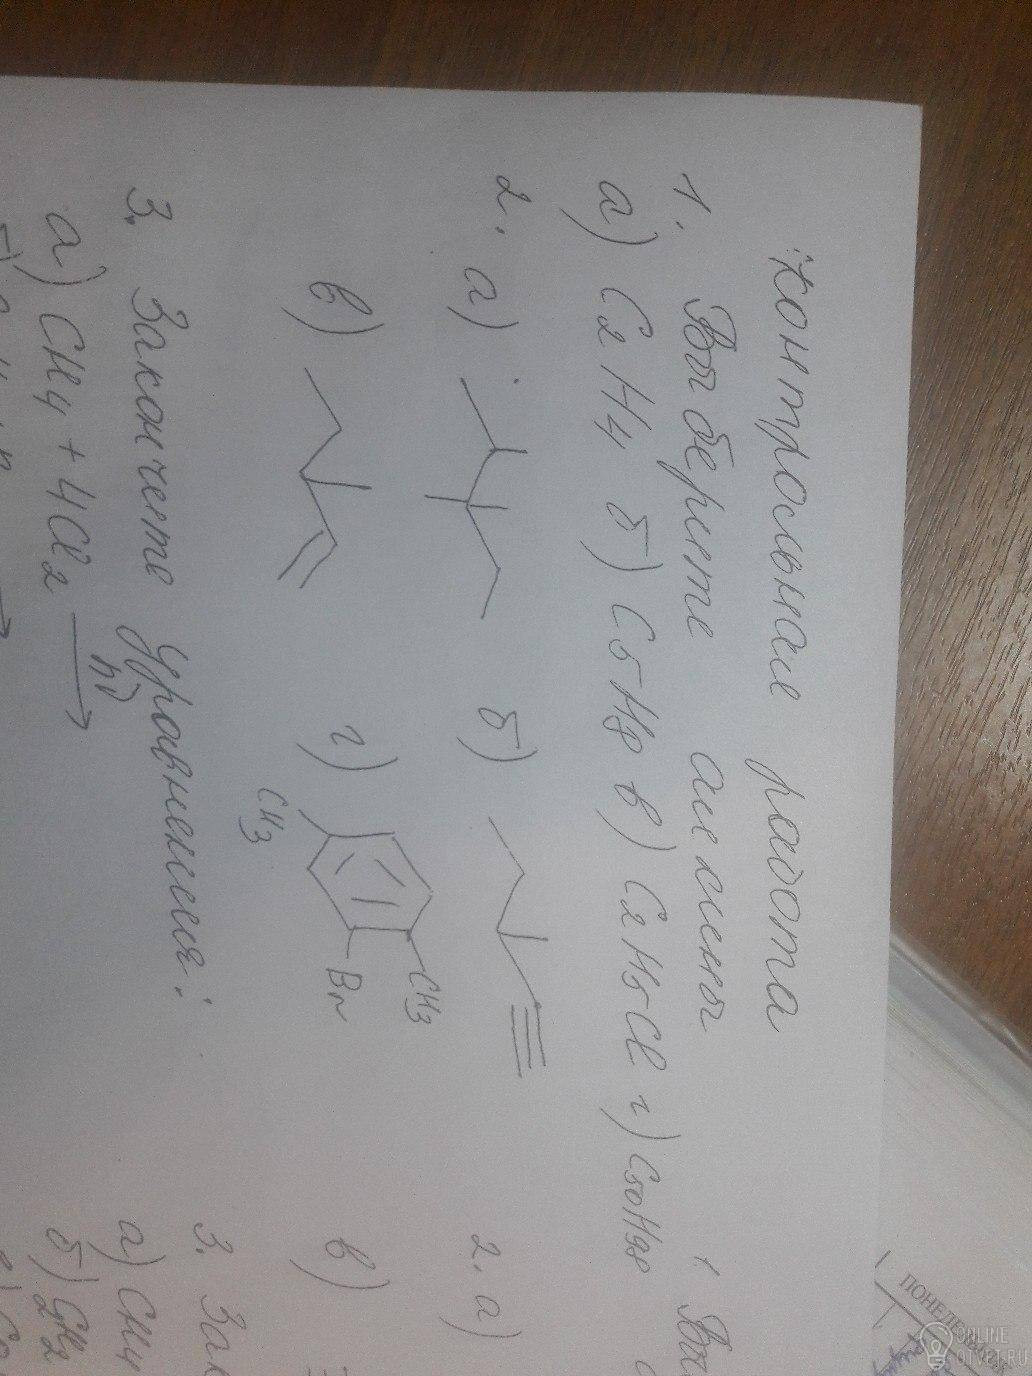 Контрольная работа
1. Выберете алкены
а) C2H4 б) C5H8 в) C2H5Cl г) C50H98
2. а) б)
в) г) CH3 Br CH3
3. Закончете уравнения:
а) CH4 + 4Cl2 hν
1. Вы
2. а)
в)
3. Зак
а) CH4
б) C2H2
ПОНЕДЕЛЬ
ONLINE
OTVET.RU